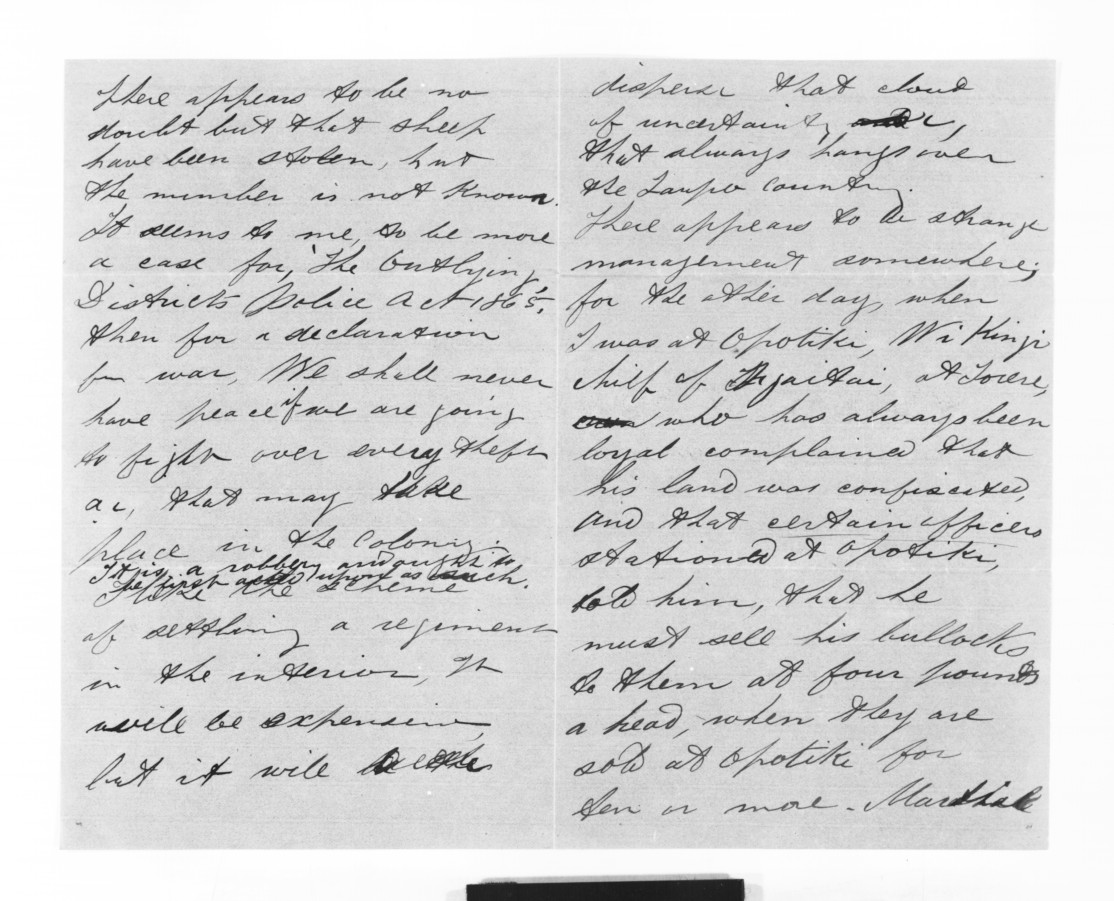 There appears to be no
doubt but that sheep
have been stolen, but
the number is not known.
It seems to me, to be more
a case for, "The Outlying
Districts Police Act 1865,"
then for a declaration
for war, We shall never
have peace if we are going
to fight over every theft
&c, that may take
place in the Colony.
It is a robbery and ought to
be first acted upon as such.
I like the scheme
of settling a regiment
in the interior, It
will be expensive,
but it will
disperse that cloud
of uncertainty &c,
that always hangs over
the Taupo Country.
There appears to be strange
management somewhere;
for the other day, when
I was at Opotiki, Wi Kingi
chief of Ngaitai, at Torere,
who has always been
loyal complained that
his land was confiscated,
and that certain officers
stationed at Opotiki,
told him, that he
must sell his bullocks
to them at four pounds
a head, when they are
sold at Opotiki for
ten or more. Marshall